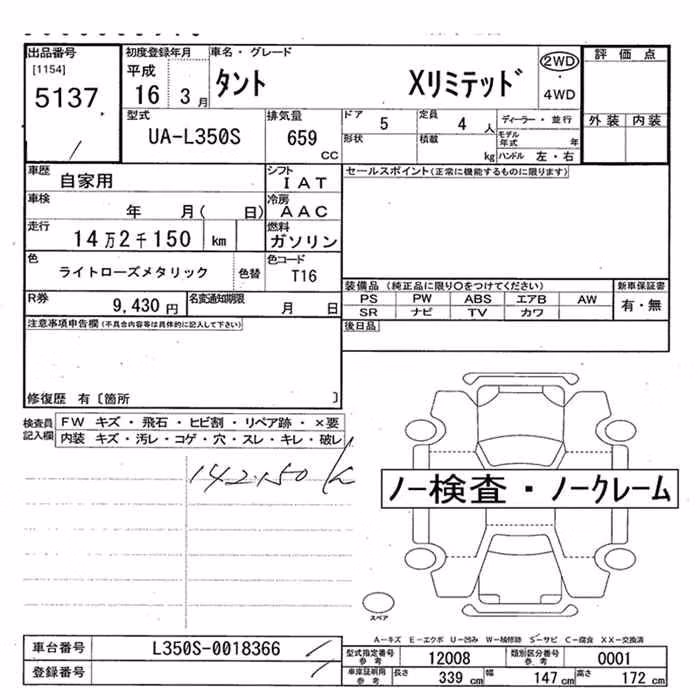 出品番号 初度登録年月 車名・グレード 2WD 評価点
[1154] 平成 タント Xリミテッド ・
5137 16 3月 4WD
型式 排気量 ドア 5 定員 4人 ディーラー・並行 外装 内装
UA-L350S 659cc 形状 積載 kg モデル年式 年
ハンドル 左・右
車歴 自家用 シフト IAT セールスポイント(正常に機能するものに限ります)
車検 年 月( 日) 冷房 AAC
走行 14万2千150 km 燃料 ガソリン
色 ライトローズメタリック 色替 色コード T16
装備品(純正品に限り○をつけてください) 新車保証書
R券 9,430円 名変通知期限 月 日 PS PW ABS エアB AW 有・無
SR ナビ TV カワ
注意事項申告欄(不具合内容等は具体的に記入して下さい) 後日品
修復歴 有〔箇所 〕
検査員記入欄 FW キズ・飛石・ヒビ割・リペア跡・×要
内装 キズ・汚レ・コゲ・穴・スレ・キレ・破レ
142150 k
ノー検査・ノークレーム
スペア
A-キズ E-エクボ U-凹み W-補修跡 S-サビ C-腐食 XX-交換済
車台番号 L350S-0018366 型式指定番号 参考 12008 類別区分番号 参考 0001
登録番号 車庫証明用 参考 長さ 339cm 幅 147cm 高さ 172cm